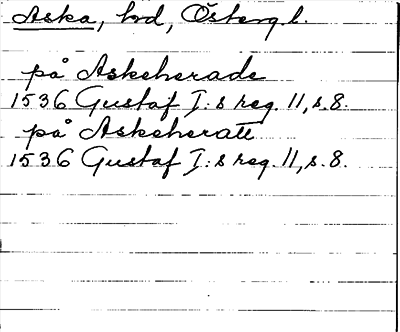 Aska, hrd, Österg. l.
på Askeherade
1536 Gustaf I:s reg. 11, s. 8.
på Askeheratt
1536 Gustaf I:s reg. 11, s. 8.